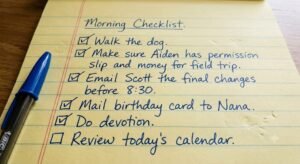 Morning Checklist.
☑ Walk the dog.
☑ Make sure Aiden has permission
slip and money for field trip.
☑ Email Scott the final changes
before 8:30.
☑ Mail birthday card to Nana.
☑ Do devotion.
☐ Review today's calendar.